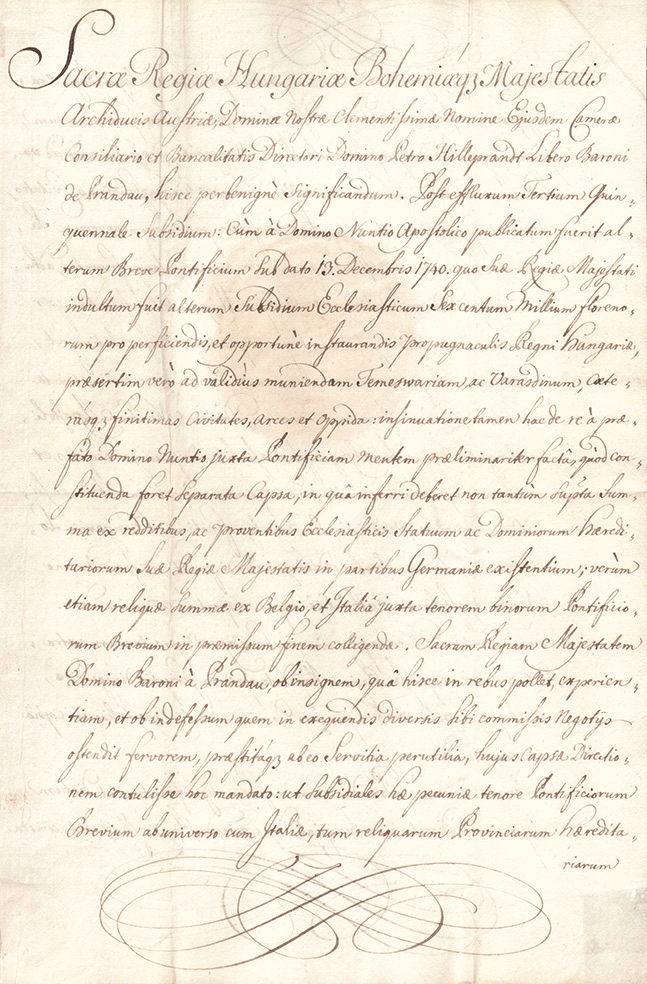 Sacræ Regiæ Hungariæ Bohemiæq3 Majestatis
Archiducis Austriæ, Dominæ Nostræ Clementissimæ Nomine Ejusdem Cameræ
Consiliario et Bancalitatis Directori Domino Petro Hilleprandt Libero Baroni
de Prandau, hisce perbenignè significandum. Post effluxum Tertium Quin„
quennale Subsidium: Cùm à Domino Nuntio Apostolico publicatum fuerit al„
terum Breve Pontificium sub dato 13. Decembris 1740. quo Suæ Regiæ Majestati
indultum fuit alterum Subsidium Ecclesiasticum Sexcentum Millium floreno„
rum pro perficiendis, et opportunè instaurandis Propugnaculis Regni Hungariæ,
præsertim verò ad validiùs muniendam Temeswariam, ac Varasdinum, cæte„
rásq3 finitimas Civitates, Arces et Oppida: insinuatione tamen hac de rè à præ„
fato Domino Nuntio juxta Pontificiam mentem præliminariter factâ, quòd con„
stituenda foret separata Cassa, in quâ inferri deberet non tantùm supta Sum„
ma ex redditibus, ac Proventibus Ecclesiasticis Statuum ac Dominiorum hæredi„
tariorum Suæ Regiæ Majestatis in partibus Germaniæ existentium; verùm
etiam reliquæ summæ ex Belgio, et Italiâ juxta tenorem binorum Pontificio„
rum Brevium in præmissum finem colligendæ. Sacram Regiam Majestatem
Domino Baroni à Prandau, ob insignem, quâ hisce in rebus pollet, experien„
tiam, et ob indefessum quem in exequendis diversis sibi commissis Negotijs
ostendit fervorem, præstitáq3 ab eo Servitia perutilia, hujus Cassæ Directio„
nem contulisse hoc mandato: ut subsidiales hæ pecuniæ tenore Pontificiorum
Brevium ab universo cum Italiæ, tum reliquarum Provinciarum hæredita„
riarum